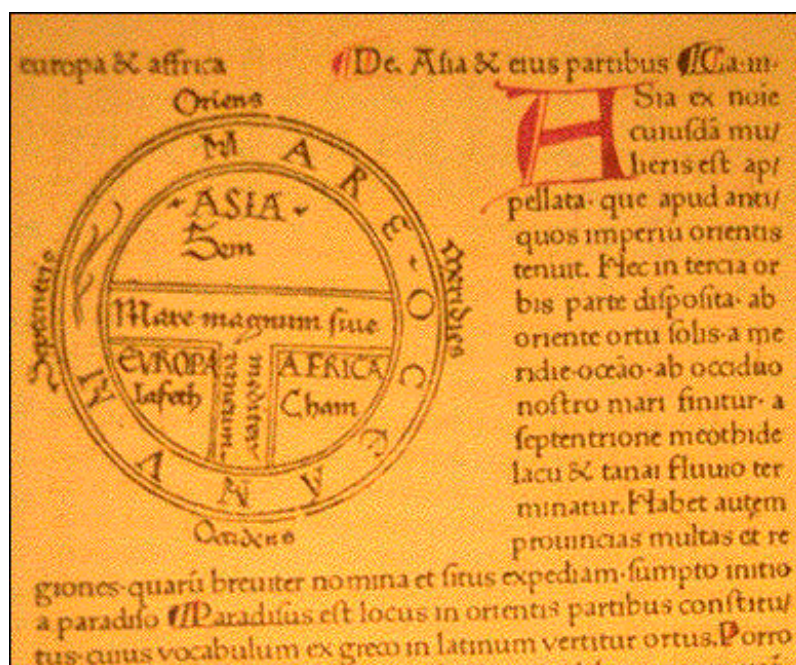 europa & affrica
De. Asia & eius partibus Ca·iii·
Oriens
MARE OCEANVM
ASIA
Sem
Septentris
Meridies
Mare magnum siue
mediterraneum
EVROPA
Iafeth
AFRICA
Cham
Occidens
ASia ex noie
cuiusdā mu/
lieris est ap/
pellata· que apud anti/
quos imperiū orientis
tenuit. Hec in tercia or
bis parte disposita· ab
oriente ortu solis·a me
ridie·oceāo·ab occiduo
nostro mari finitur· a
septentrione meothide
lacu & tanai fluuio ter
minatur. Habet autem
prouincias multas et re
giones·quarū breuiter nomina et situs expediam·sumpto initio
a paradiso Paradisus est locus in orientis partibus constitu/
tus·cuius vocabulum ex greco in latinum vertitur ortus. Porro